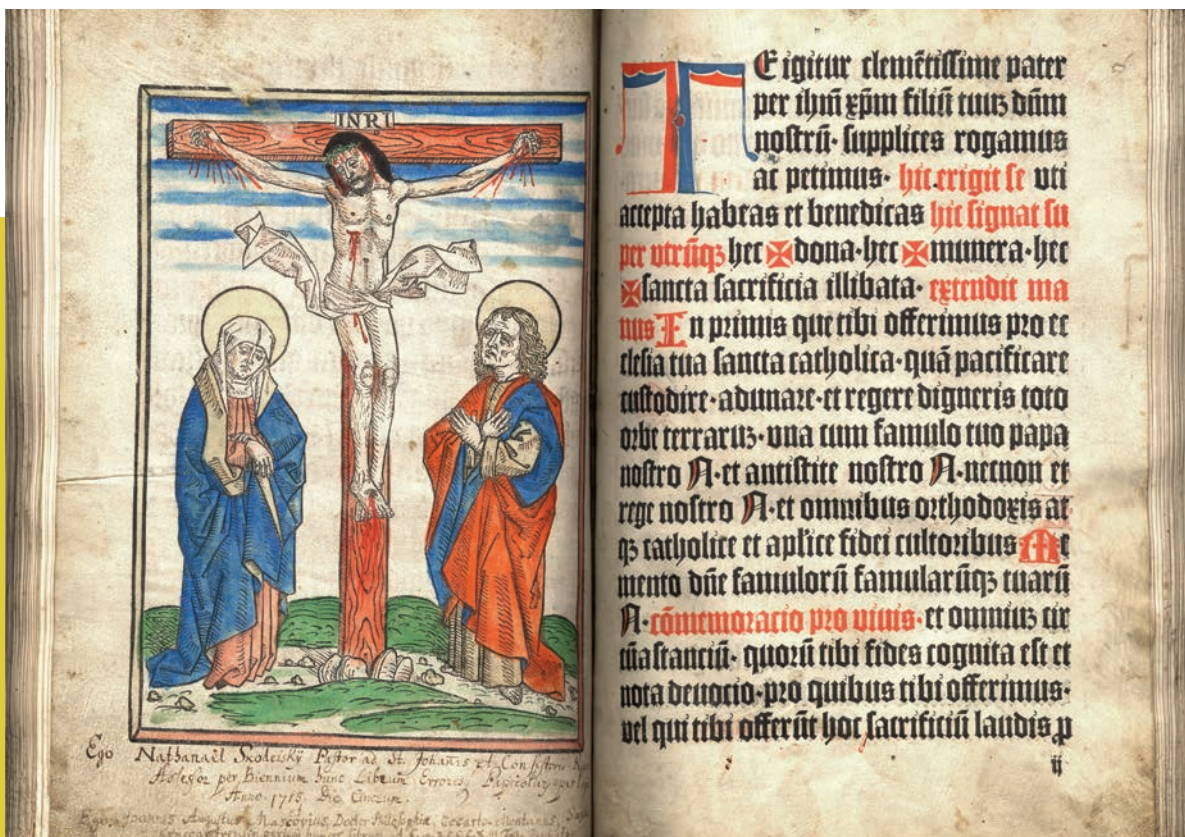 INRI
Ego Nathanaël Skodeiskÿ Pastor ad St. Johanis et Consistorii
Assessor per Biennium hunc Librum Errores
Anno 1715. Die Cinerum.
Ego Joannes Augustus Nascovius, Doctor Philosophiæ,
TE igitur clemētissime pater
per ihm̄ xp̄m filiū tuuꝫ dn̄m
nostrū· supplices rogamus
ac petimus· hic erigit se vti
accepta habeas et benedicas hic signat su
per vtrūqꝫ hec ✠ dona·hec ✠ munera·hec
✠ sancta sacrificia illibata· extendit ma
nus In primis que tibi offerimus pro ec
clesia tua sancta catholica·quā pacificare
custodire·adunare·et regere digneris toto
orbe terraruꝫ·vna cum famulo tuo papa
nostro N·et antistite nostro N·necnon et
rege nostro N·et omnibus orthodoxis at
qꝫ catholice et apl̄ice fidei cultoribus Me
mento dn̄e famulorū famularūqꝫ tuarū
N·cōmemoracio pro viuis·et omniuꝫ cir
cūstanciū· quorū tibi fides cognita est et
nota deuocio·pro quibus tibi offerimus·
vel qui tibi offerūt hoc sacrificiū laudis ꝓ
ij